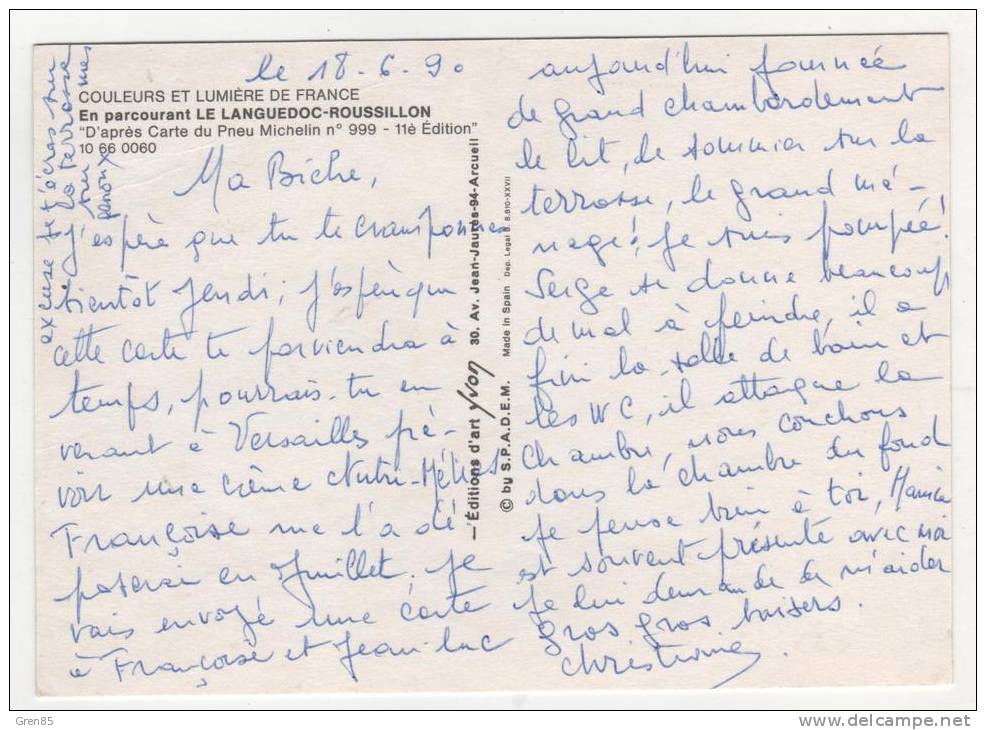 le 18-6-90
COULEURS ET LUMIÈRE DE FRANCE
En parcourant LE LANGUEDOC-ROUSSILLON
"D'après Carte du Pneu Michelin n° 999 - 11è Édition"
10 66 0060
Ma Biche,
j'espère que tu te cramponnes
bientôt Jeudi; j'espère que
cette carte te parviendra à
temps, pourrais-tu en
venant à Versailles pré-
voir une crème Nutri-
Françoise me l'a dé
poserai en Juillet. Je
vais envoyé une carte
à Françoise et Jean Luc
excuse je t'écris sur
la terrasse
sur mes
genoux
Éditions d'art Yvon 30. Av. Jean-Jaurès-94-Arcueil
© by S.P.A.D.E.M. Made in Spain Dep. Legal B. 8.810-XXVII
aujourd'hui journée
de grand chambardement
le lit, le sommier sur la
terrasse, le grand mé-
nage! Je suis pompée!
Serge se donne beaucoup
de mal à peindre, il a
fini la salle de bain et
les WC, il attaque la
chambre, nous couchons
dans la chambre du fond
Je pense bien à toi, Mamie
est souvent présente avec moi
Je lui demande de m'aider
gros, gros baisers.
Christiane
Gren85
delcampe.net